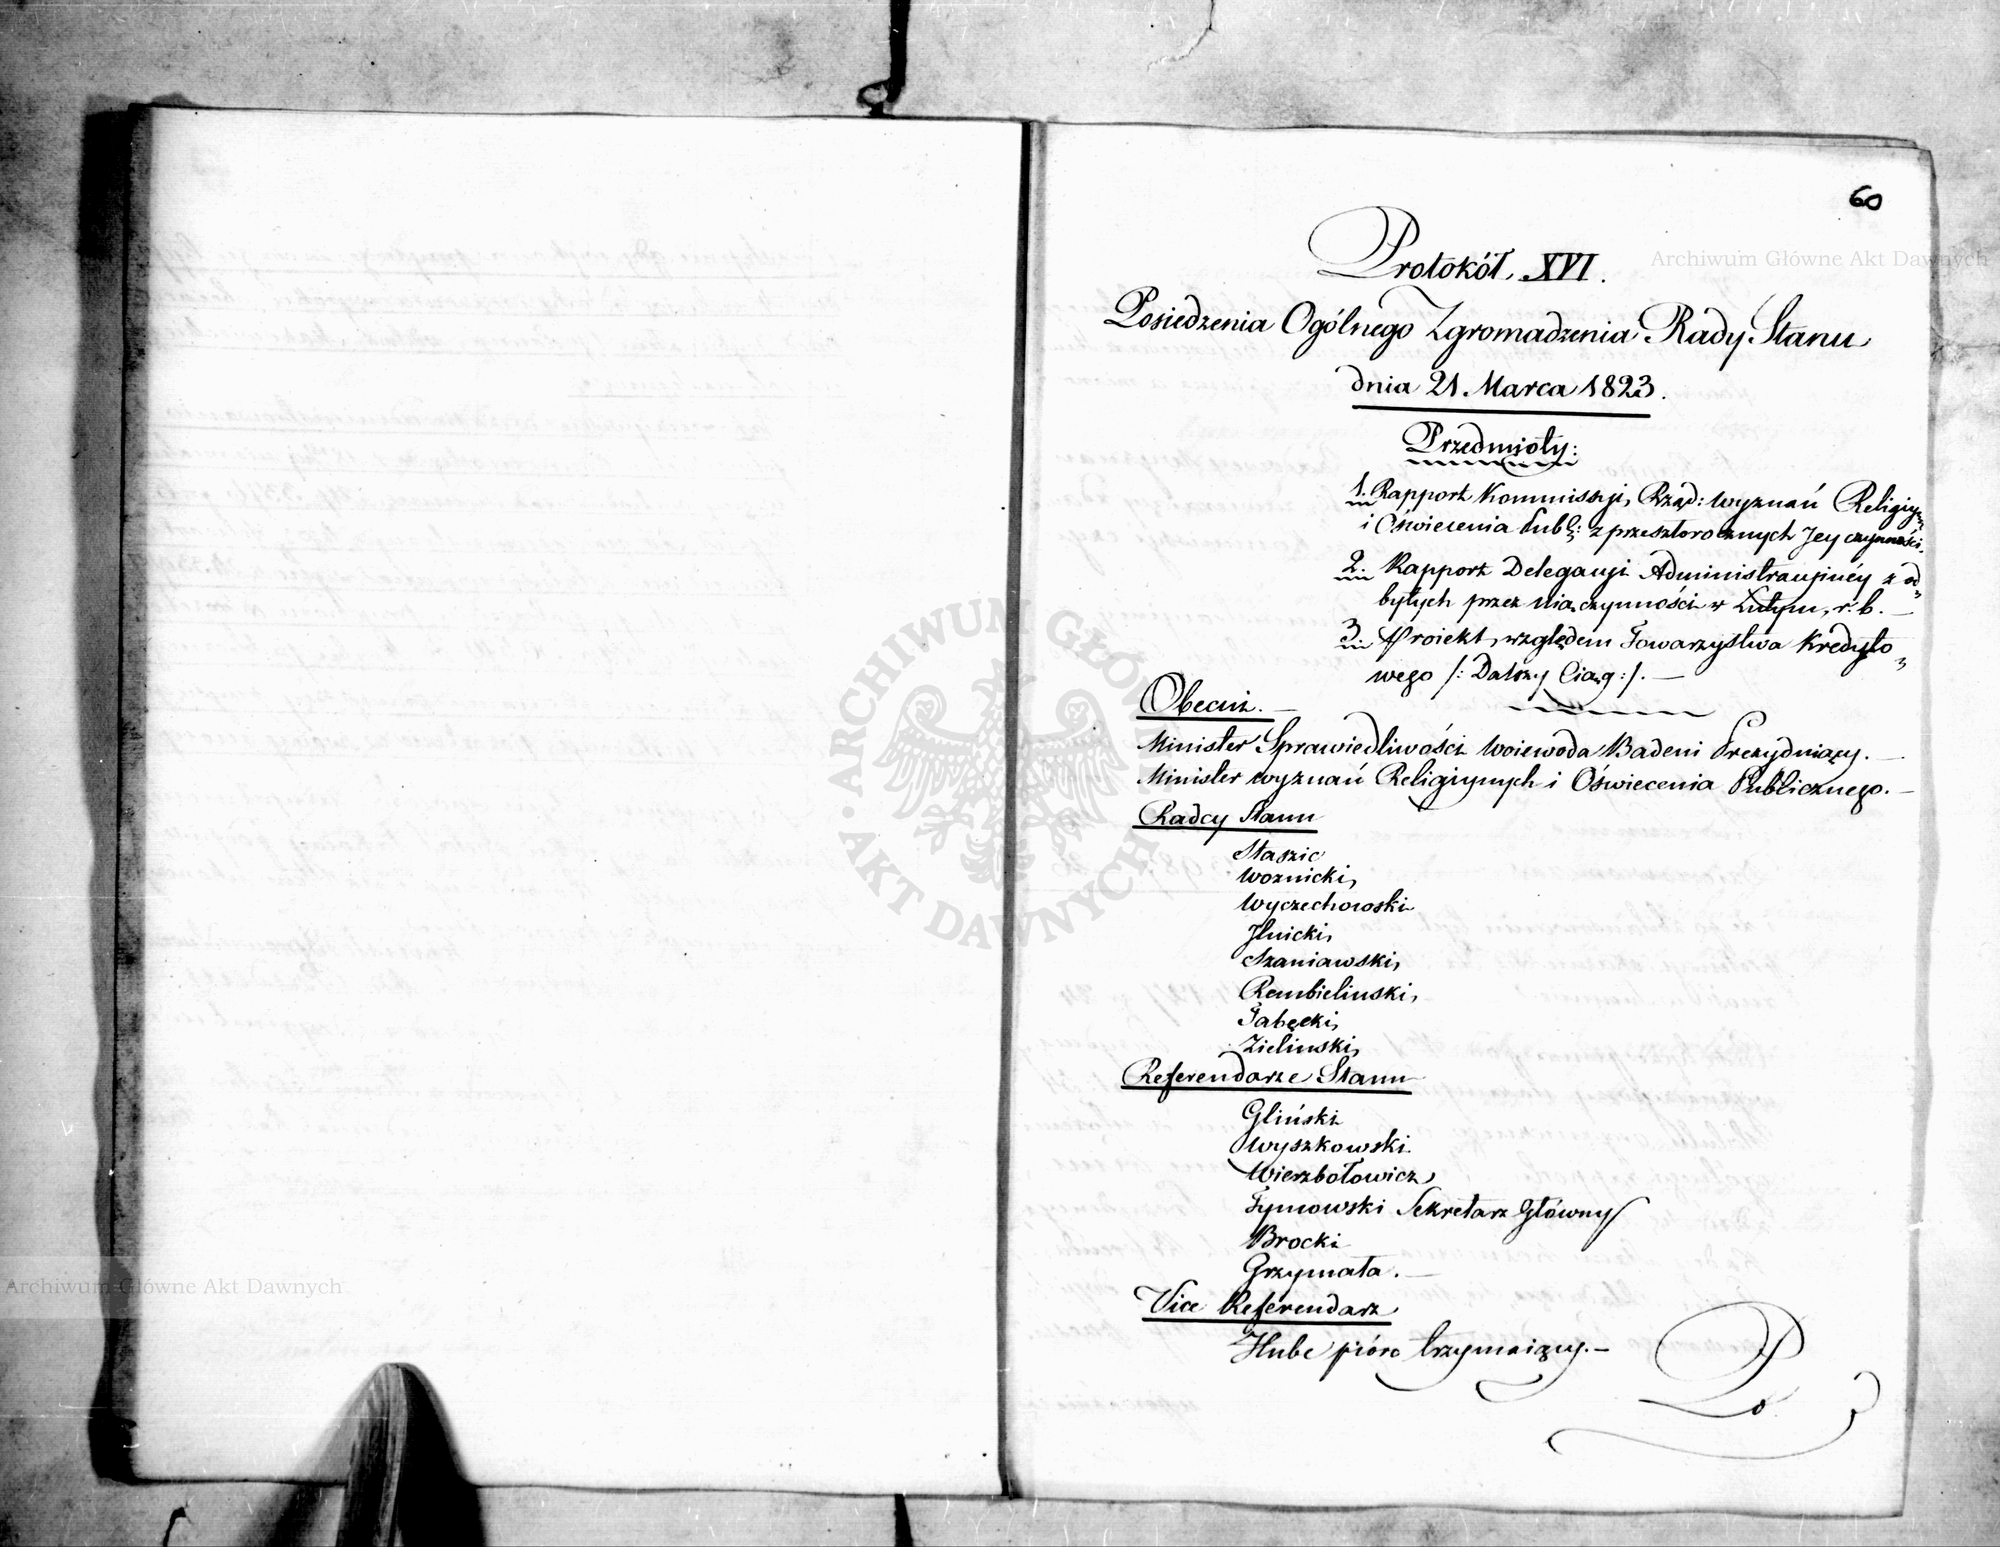 60
Protokół XVI.
Posiedzenia Ogólnego Zgromadzenia Rady Stanu
dnia 21. Marca 1823.
Przedmioty:
1. Rapport Kommissyi Rząd: Wyznań Religiyn:
i Oświecenia Publ: z przeszłorocznych Jey czynności.
2. Rapport Delegacyi Administracyinéy z od
bytych przez nią czynności w Lutym, r. b. —
3. Proiekt względem Towarzystwa Kredyto
wego /: Dalszy Ciąg :/. —
Obecni. —
Minister Sprawiedliwości Woiewoda Badeni Prezyduiący. —
Minister wyznań Religiynych i Oświecenia Publicznego. —
Radcy Stanu
Staszic
Woznicki,
Wyczechowski
Jlnicki,
Szaniawski,
Rembielinski,
Tabęcki,
Zielinski,
Referendarze Stanu
Gliński
Wyszkowski
Wierzbołowicz
Tymowski Sekretarz Główny
Brocki
Grzymała. —
Vice Referendarz
Hube pióro trzymaiący. —
Po
Archiwum Główne Akt Dawnych
Archiwum Główne Akt Dawnych
ARCHIWUM GŁÓWNE AKT DAWNYCH